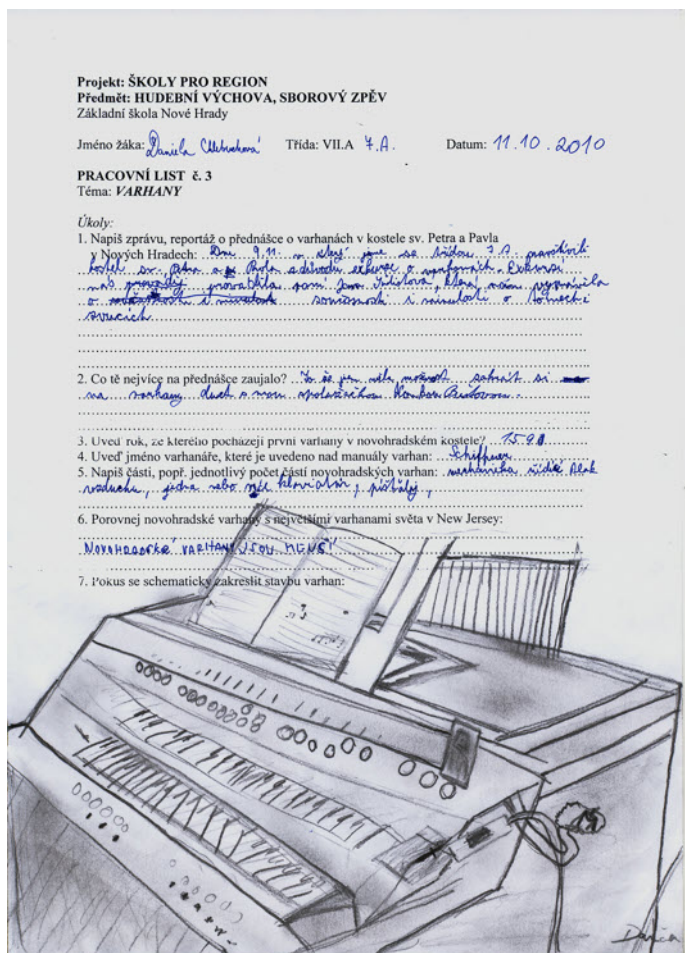 Projekt: ŠKOLY PRO REGION
Předmět: HUDEBNÍ VÝCHOVA, SBOROVÝ ZPĚV
Základní škola Nové Hrady
Jméno žáka: Daniela Třída: VII.A 7.A. Datum: 11.10.2010
PRACOVNÍ LIST č. 3
Téma: VARHANY
Úkoly:
1. Napiš zprávu, reportáž o přednášce o varhanách v kostele sv. Petra a Pavla
v Nových Hradech: Dne 9.11. jsme se třídou 7.A navštívili
kostel sv. Petra a Pavla z důvodu exkurze o varhanách. Exkurzí
nás provedla paní která nám vyprávěla
o současnosti i minulosti o
2. Co tě nejvíce na přednášce zaujalo? To že jsem měla možnost zahrát si
na varhany duet s mou spolužačkou
3. Uveď rok, ze kterého pocházejí první varhany v novohradském kostele? 1590
4. Uveď jméno varhanáře, které je uvedeno nad manuály varhan: Schiffner
5. Napiš části, popř. jednotlivý počet částí novohradských varhan: mechanika řídící tlak
vzduchu, jedna nebo více klaviatur, píšťaly,
6. Porovnej novohradské varhany s největšími varhanami světa v New Jersey:
NOVOHRADSKÉ VARHANY JSOU MENŠÍ
7. Pokus se schematicky zakreslit stavbu varhan: